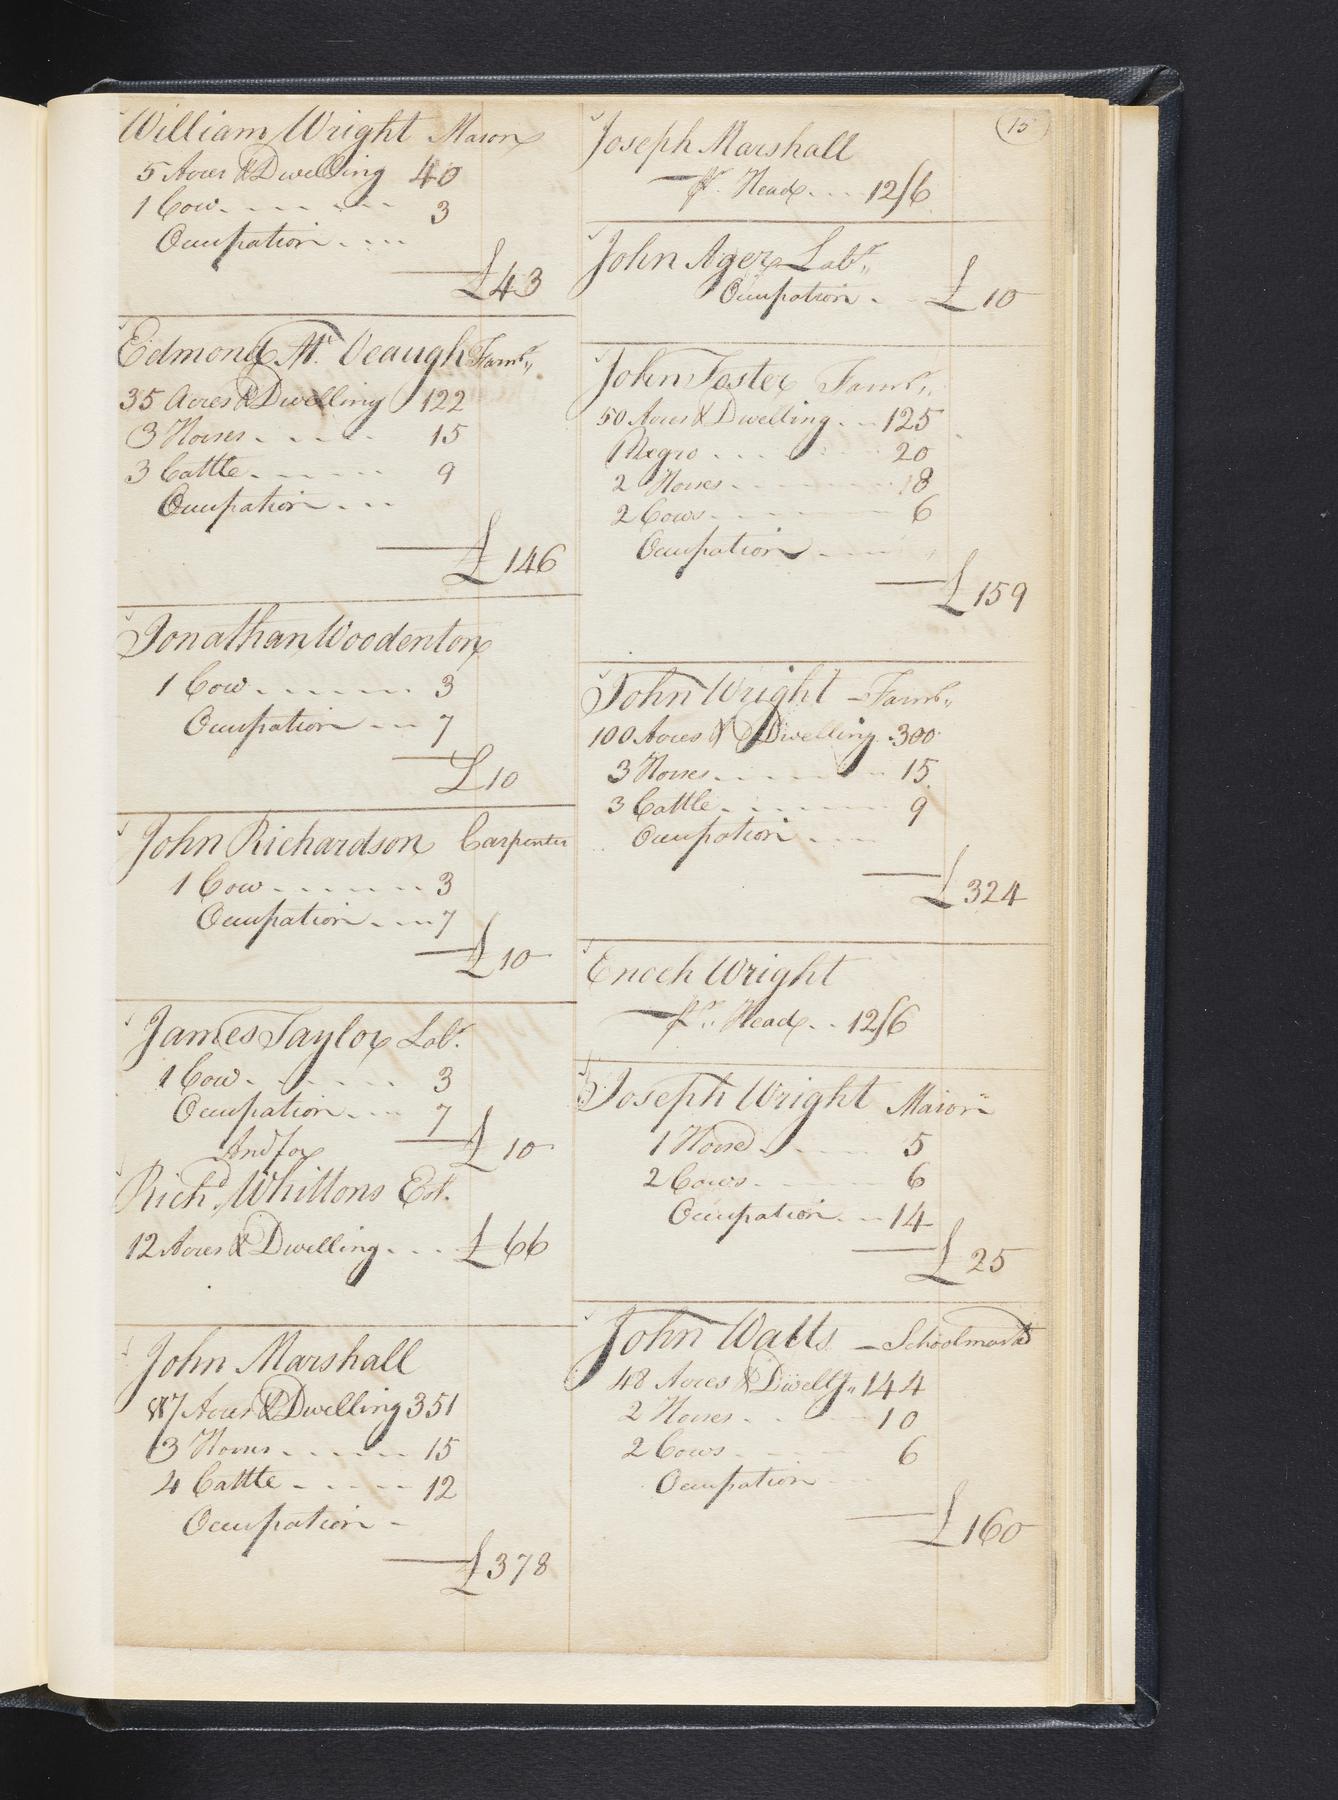 15
William Wright Mason
5 Acres & Dwelling 40
1 Cow 3
Occupation
£43
Edmond Mc Veaugh Farmr
35 Acres & Dwelling 122
3 Horses 15
3 Cattle 9
Occupation
£146
Jonathan Woodenton
1 Cow 3
Occupation 7
£10
John Richardson Carpenter
1 Cow 3
Occupation 7
£10
James Taylor Labr.
1 Cow 3
Occupation 7
£10
And for
Richd. Whittons Est.
12 Acres & Dwelling £66
John Marshall
Acres & Dwelling 351
3 Horses 15
4 Cattle 12
Occupation
£378
Joseph Marshall
pr. Head 12/6
John Ager Labr.
Occupation £10
John Foster Farmr.
50 Acres & Dwelling 125
1 Negro 20
2 Horses 8
2 Cows 6
Occupation
£159
John Wright Farmr.
100 Acres & Dwelling 300
3 Horses 15
3 Cattle 9
Occupation
£324
Enoch Wright
pr. Head 12/6
Joseph Wright Mason
1 Horse 5
2 Cows 6
Occupation 14
£25
John Watts Schoolmastr
48 Acres & Dwellg. 144
2 Horses 10
2 Cows 6
Occupation
£160